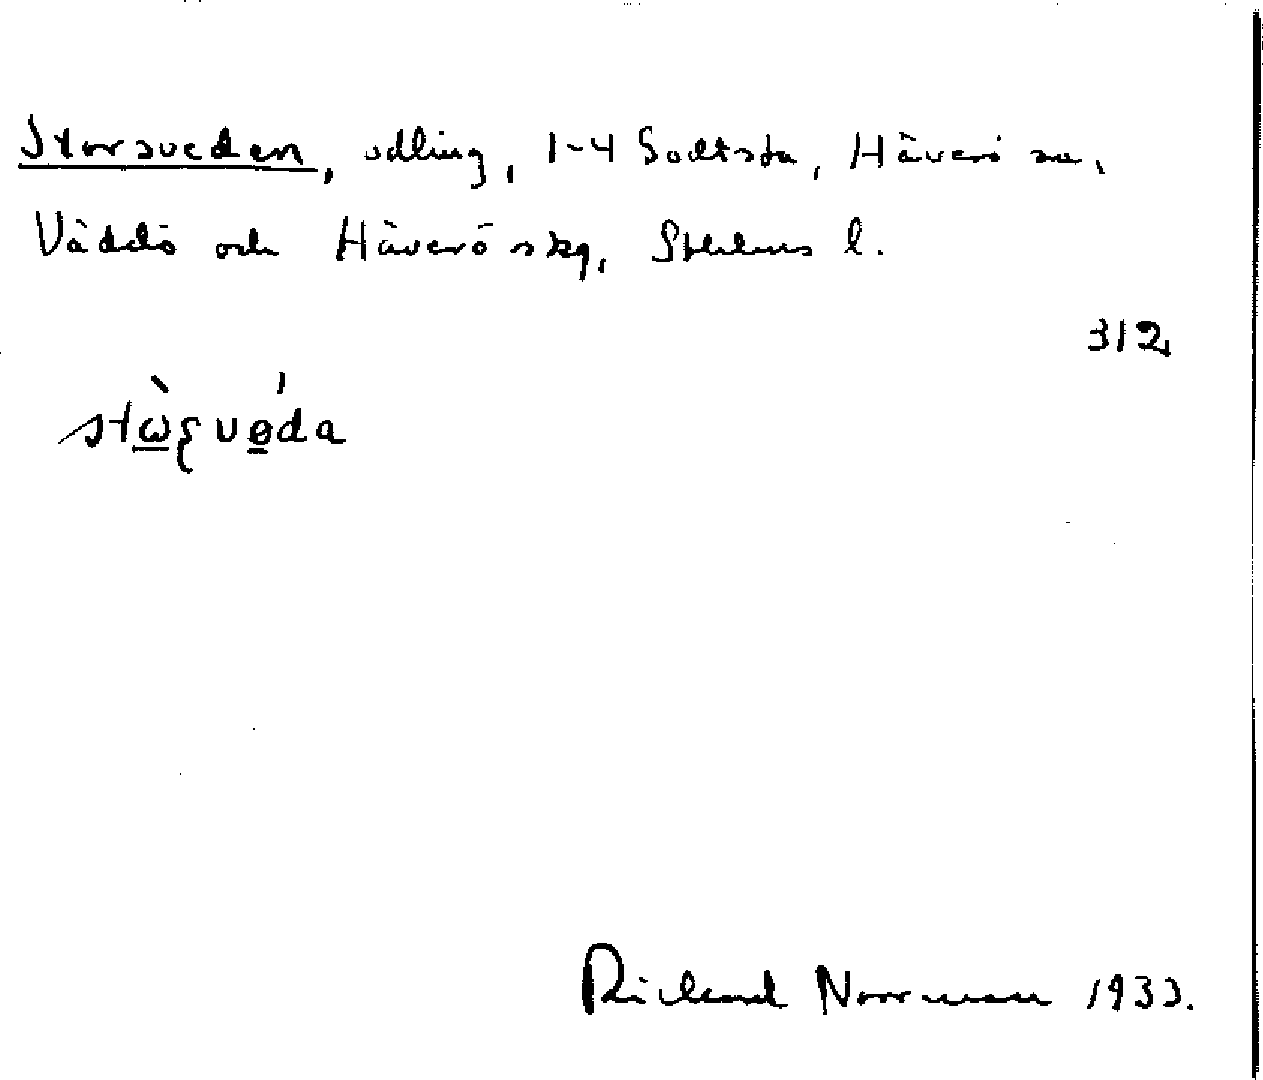 Storsveden, odling, 1-4 Sodtsta, Häverö sn,
Väddö och Häverö skg, Sthlms l.
312
stὼ̲ʂvɵ̲́da
Richard Norrman 1933.